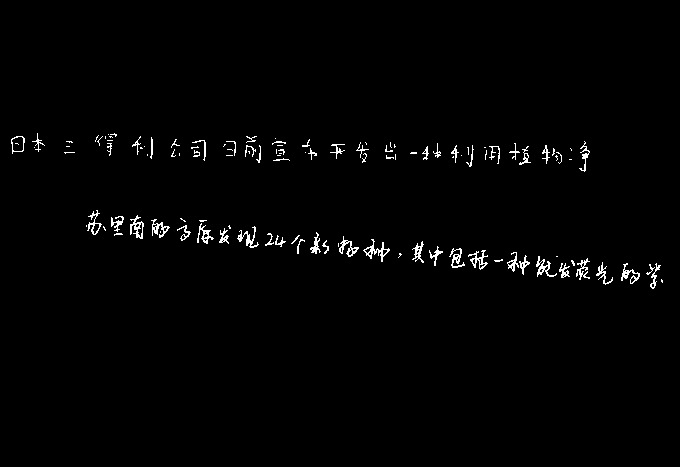 日本三得利公司日前宣布开发出一种利用植物净
苏里南的高原发现24个新物种,其中包括一种能发荧光的紫